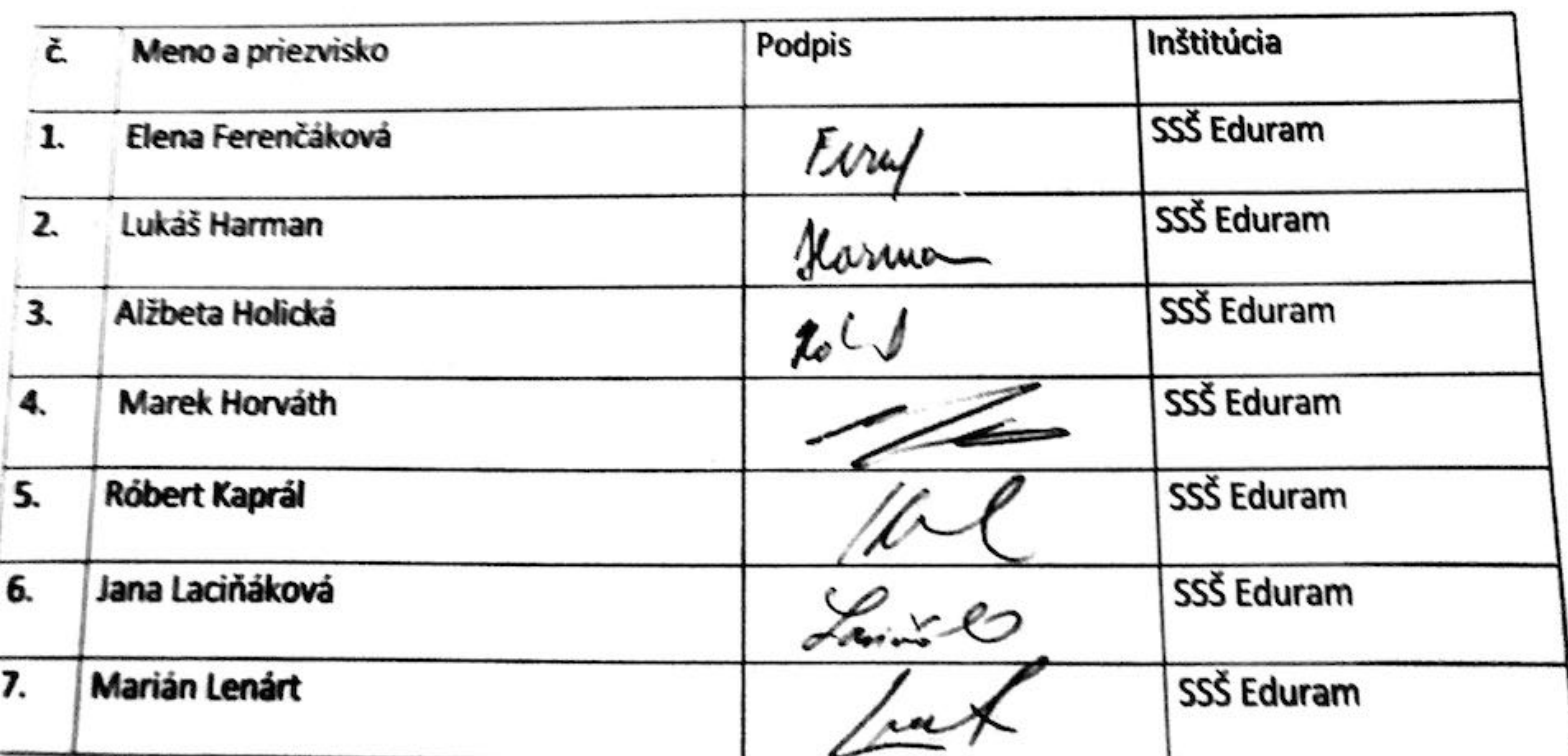 č. Meno a priezvisko Podpis Inštitúcia
1. Elena Ferenčáková SSŠ Eduram
2. Lukáš Harman Harman SSŠ Eduram
3. Alžbeta Holická SSŠ Eduram
4. Marek Horváth SSŠ Eduram
5. Róbert Kaprál SSŠ Eduram
6. Jana Laciňáková SSŠ Eduram
7. Marián Lenárt SSŠ Eduram